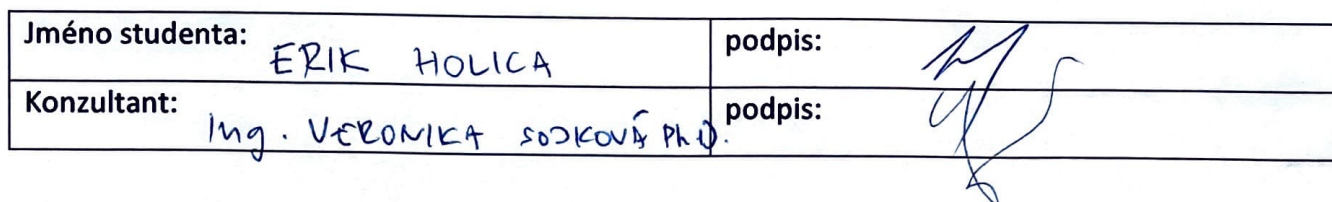 Jméno studenta: ERIK HOLICA podpis:
Konzultant: Ing. VERONIKA SOJKOVÁ Ph.D. podpis: